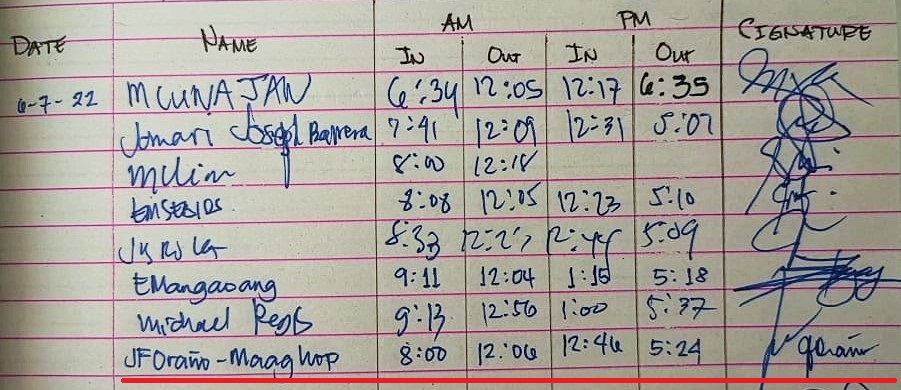 AM PM
DATE NAME IN OUT IN OUT CIGNATURE
6-7-22 MCUNAJAN 6:34 12:05 12:17 6:35
Jomari Joseph Barrera 7:41 12:09 12:31 5:07
MLim 8:00 12:18
8:08 12:05 12:23 5:10
8:33 12:44 5:09
EMangaoang 9:11 12:04 1:15 5:18
Michael Regis 9:13 12:56 1:00 5:37
JFOraño-Maaghop 8:00 12:06 12:46 5:24